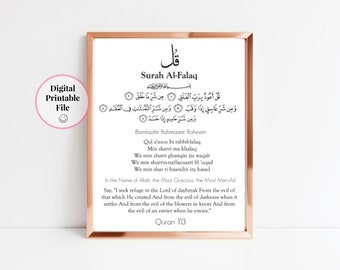 Digital
Printable
File
قُل
Surah Al-Falaq
قُلْ أَعُوذُ بِرَبِّ الْفَلَقِ ۝ مِن شَرِّ مَا خَلَقَ ۝
وَمِن شَرِّ غَاسِقٍ إِذَا وَقَبَ ۝ وَمِن شَرِّ النَّفَّاثَاتِ فِي الْعُقَدِ ۝
وَمِن شَرِّ حَاسِدٍ إِذَا حَسَدَ ۝
Bismilaahir Rahmaanir Raheem
Qul a'uzoo bi rabbil-falaq
Min sharri ma khalaq
Wa min sharri ghasiqin iza waqab
Wa min sharrin-naffaa-saati fil 'uqad
Wa min shar ri haasidin iza hasad
In the Name of Allah, the Most Gracious, the Most Merciful.
Say, "I seek refuge in the Lord of daybreak From the evil of
that which He created And from the evil of darkness when it
settles And from the evil of the blowers in knots And from
the evil of an envier when he envies."
Quran 113